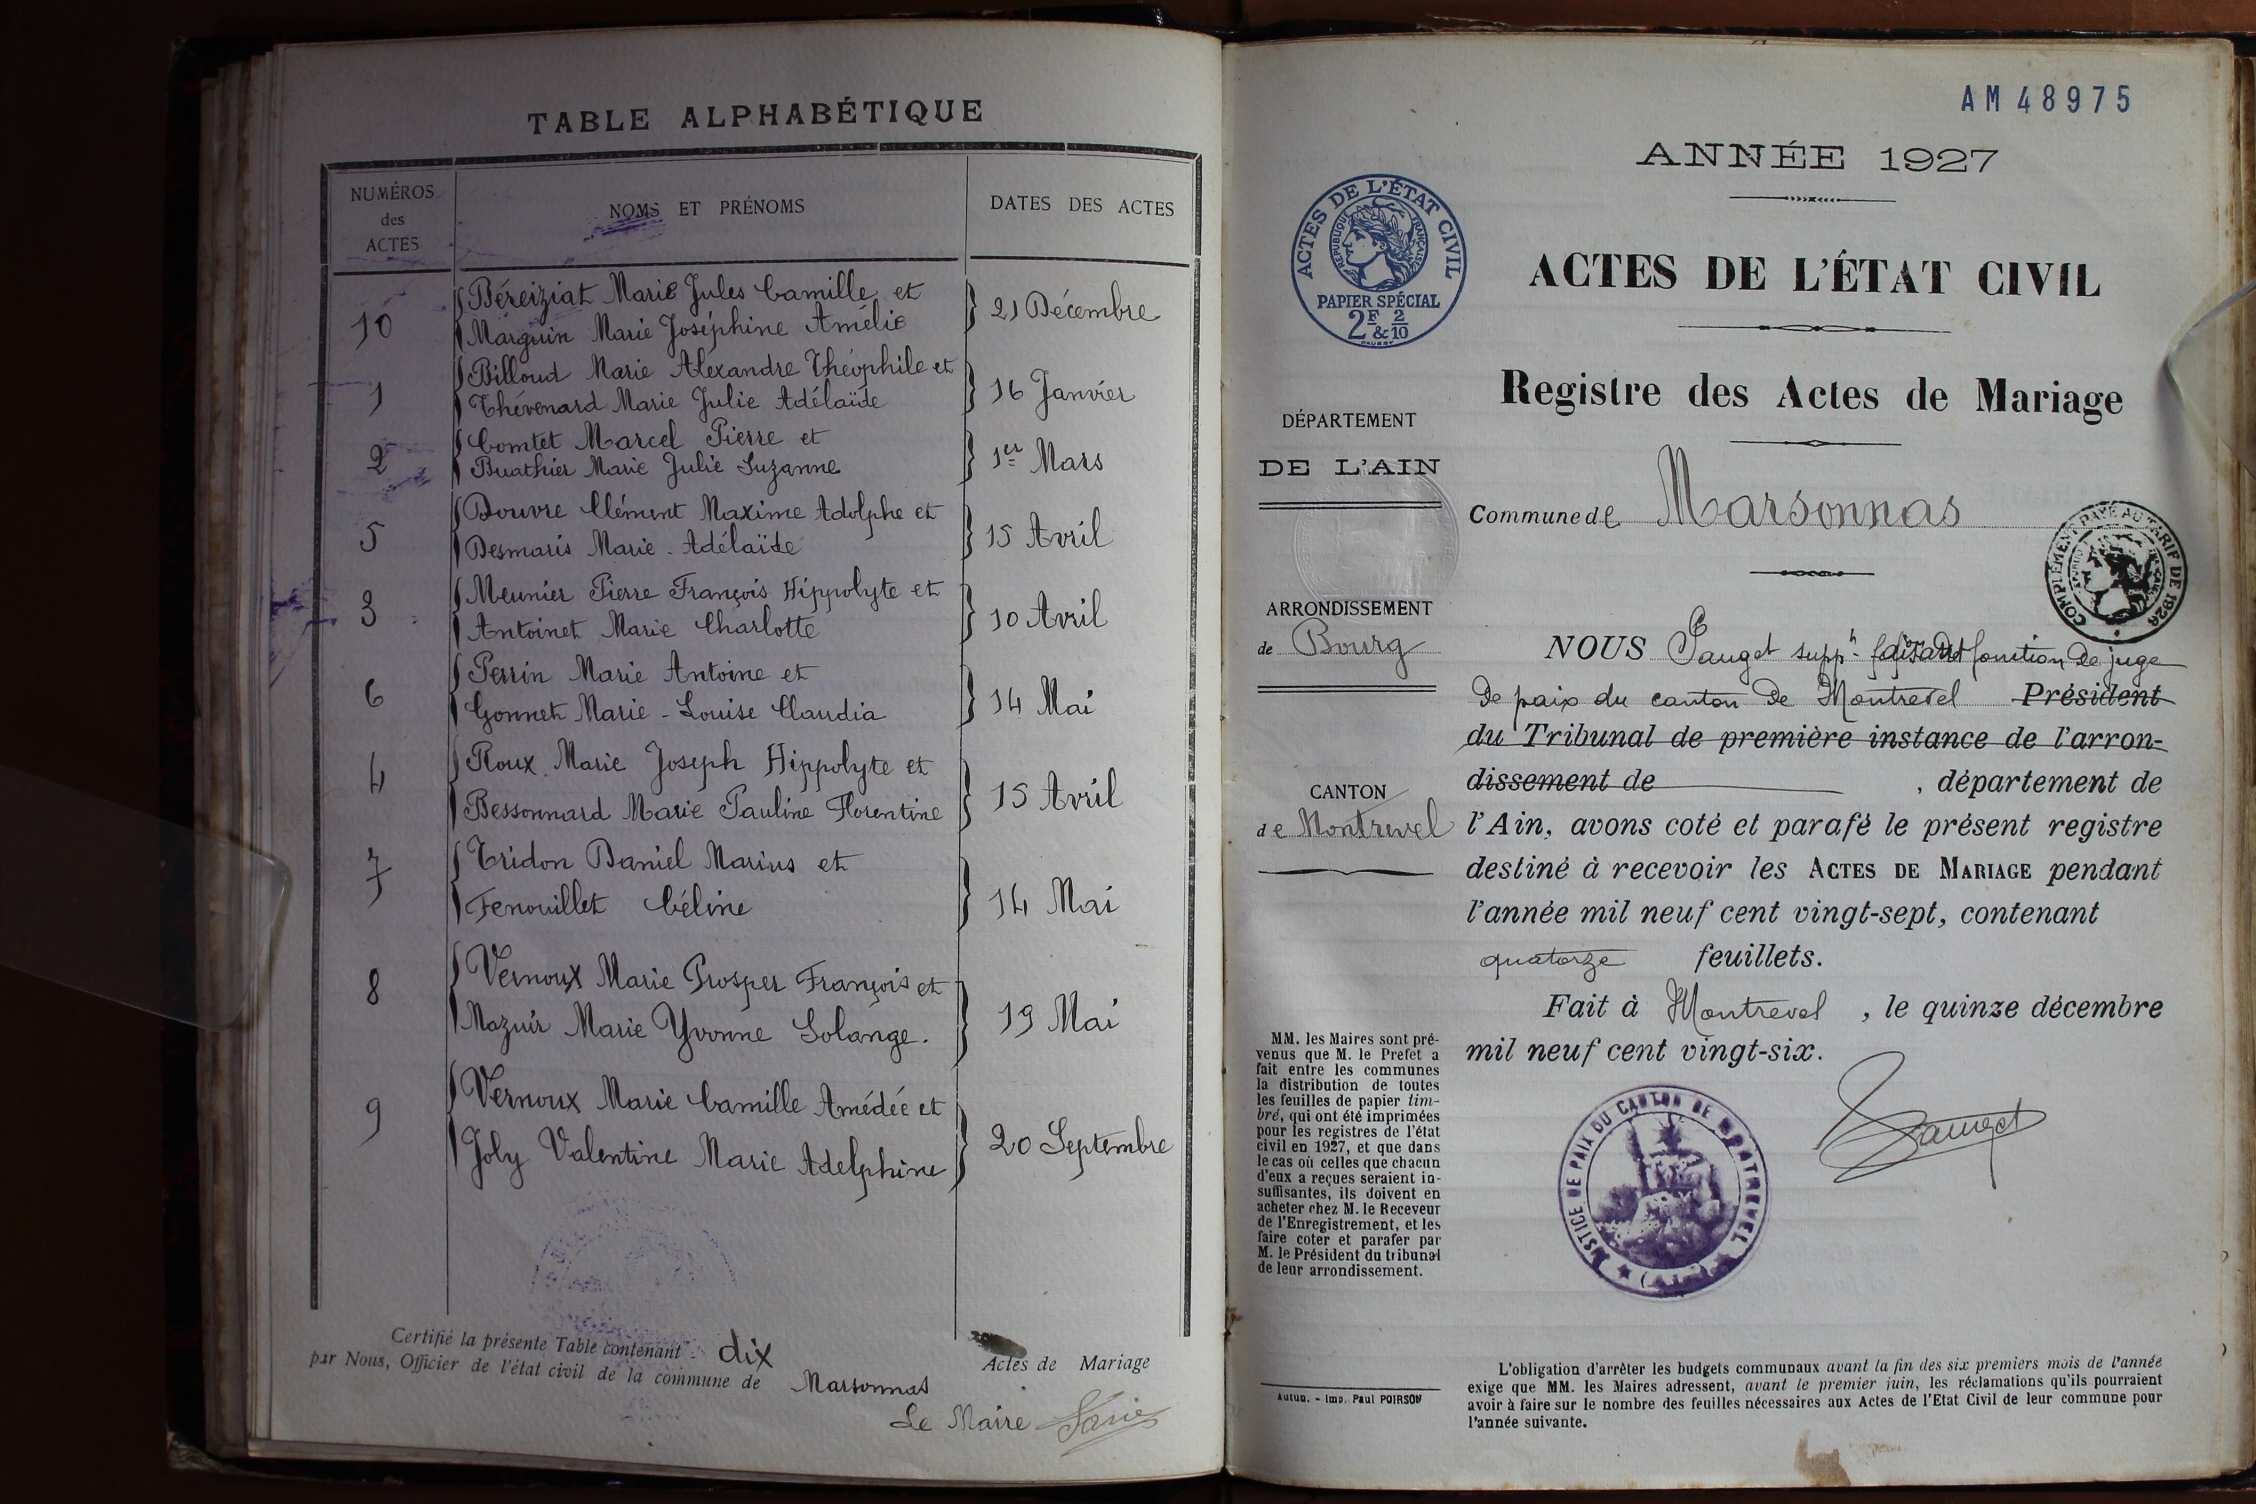 TABLE ALPHABÉTIQUE
NUMÉROS
des
ACTES
NOMS ET PRÉNOMS
DATES DES ACTES
10
Béreiziat Marie Jules Camille et
Marguin Marie Joséphine Amélie
21 Décembre
1
Billoud Marie Alexandre Théophile et
Thévenard Marie Julie Adélaïde
16 Janvier
2
Comtet Marcel Pierre et
Buathier Marie Julie Suzanne
1er Mars
5
Douvre Clément Maxime Adolphe et
Desmaris Marie-Adélaïde
15 Avril
3
Meunier Pierre François Hippolyte et
Antoinet Marie Charlotte
10 Avril
6
Perrin Marie Antoine et
Gonnet Marie-Louise Claudia
14 Mai
4
Roux Marie Joseph Hippolyte et
Bessonnard Marie Pauline Florentine
15 Avril
7
Tridon Daniel Marius et
Fenouillet Céline
14 Mai
8
Vernoux Marie Prosper François et
Mazuir Marie Yvonne Solange.
19 Mai
9
Vernoux Marie Camille Amédée et
Joly Valentine Marie Adelphine
20 Septembre
Certifié la présente Table contenant dix Actes de Mariage
par Nous, Officier de l'état civil de la commune de Marsonnas
Le Maire
AM 48975
ANNÉE 1927
ACTES DE L'ÉTAT CIVIL
RÉPUBLIQUE FRANÇAISE
PAPIER SPÉCIAL
2F & 2/10
ACTES DE L'ÉTAT CIVIL
Registre des Actes de Mariage
DÉPARTEMENT
DE L'AIN
Commune de Marsonnas
COMPLÉMENT PAYÉ AU TARIF DE 1926
ARRONDISSEMENT
de Bourg
CANTON
de Montrevel
NOUS Pauget suppt faisant fonction de juge
de paix du canton de Montrevel Président
du Tribunal de première instance de l'arron-
dissement de , département de
l'Ain, avons coté et parafé le présent registre
destiné à recevoir les ACTES DE MARIAGE pendant
l'année mil neuf cent vingt-sept, contenant
quatorze feuillets.
Fait à Montrevel, le quinze décembre
mil neuf cent vingt-six.
Pauget
JUSTICE DE PAIX DU CANTON DE MONTREVEL
(AIN)
MM. les Maires sont pré-
venus que M. le Prefet a
fait entre les communes
la distribution de toutes
les feuilles de papier tim-
bré, qui ont été imprimées
pour les registres de l'état
civil en 1927, et que dans
le cas où celles que chacun
d'eux a reçues seraient in-
suffisantes, ils doivent en
acheter chez M. le Receveur
de l'Enregistrement, et les
faire coter et parafer par
M. le Président du tribunal
de leur arrondissement.
Autun. - Imp. Paul POIRSON
L'obligation d'arrêter les budgets communaux avant la fin des six premiers mois de l'année
exige que MM. les Maires adressent, avant le premier juin, les réclamations qu'ils pourraient
avoir à faire sur le nombre des feuilles nécessaires aux Actes de l'Etat Civil de leur commune pour
l'année suivante.